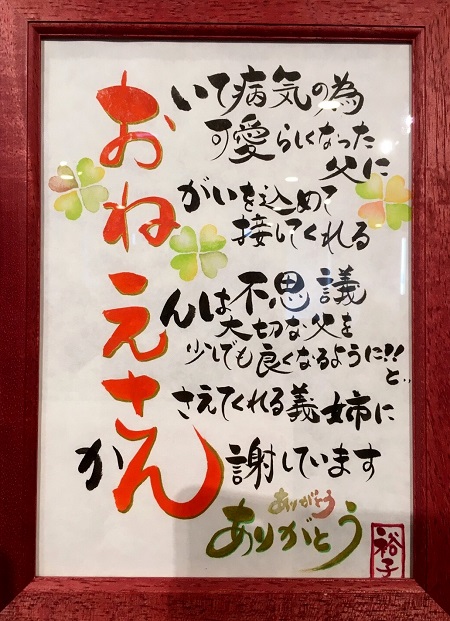 おいて病気の為
可愛らしくなった
父に
ねがいを込めて
接してくれる
えんは不思議
大切な父を
少しでも良くなるように!!
と..
ささえてくれる義姉に
かん謝しています
ありがとう
ありがとう
裕子